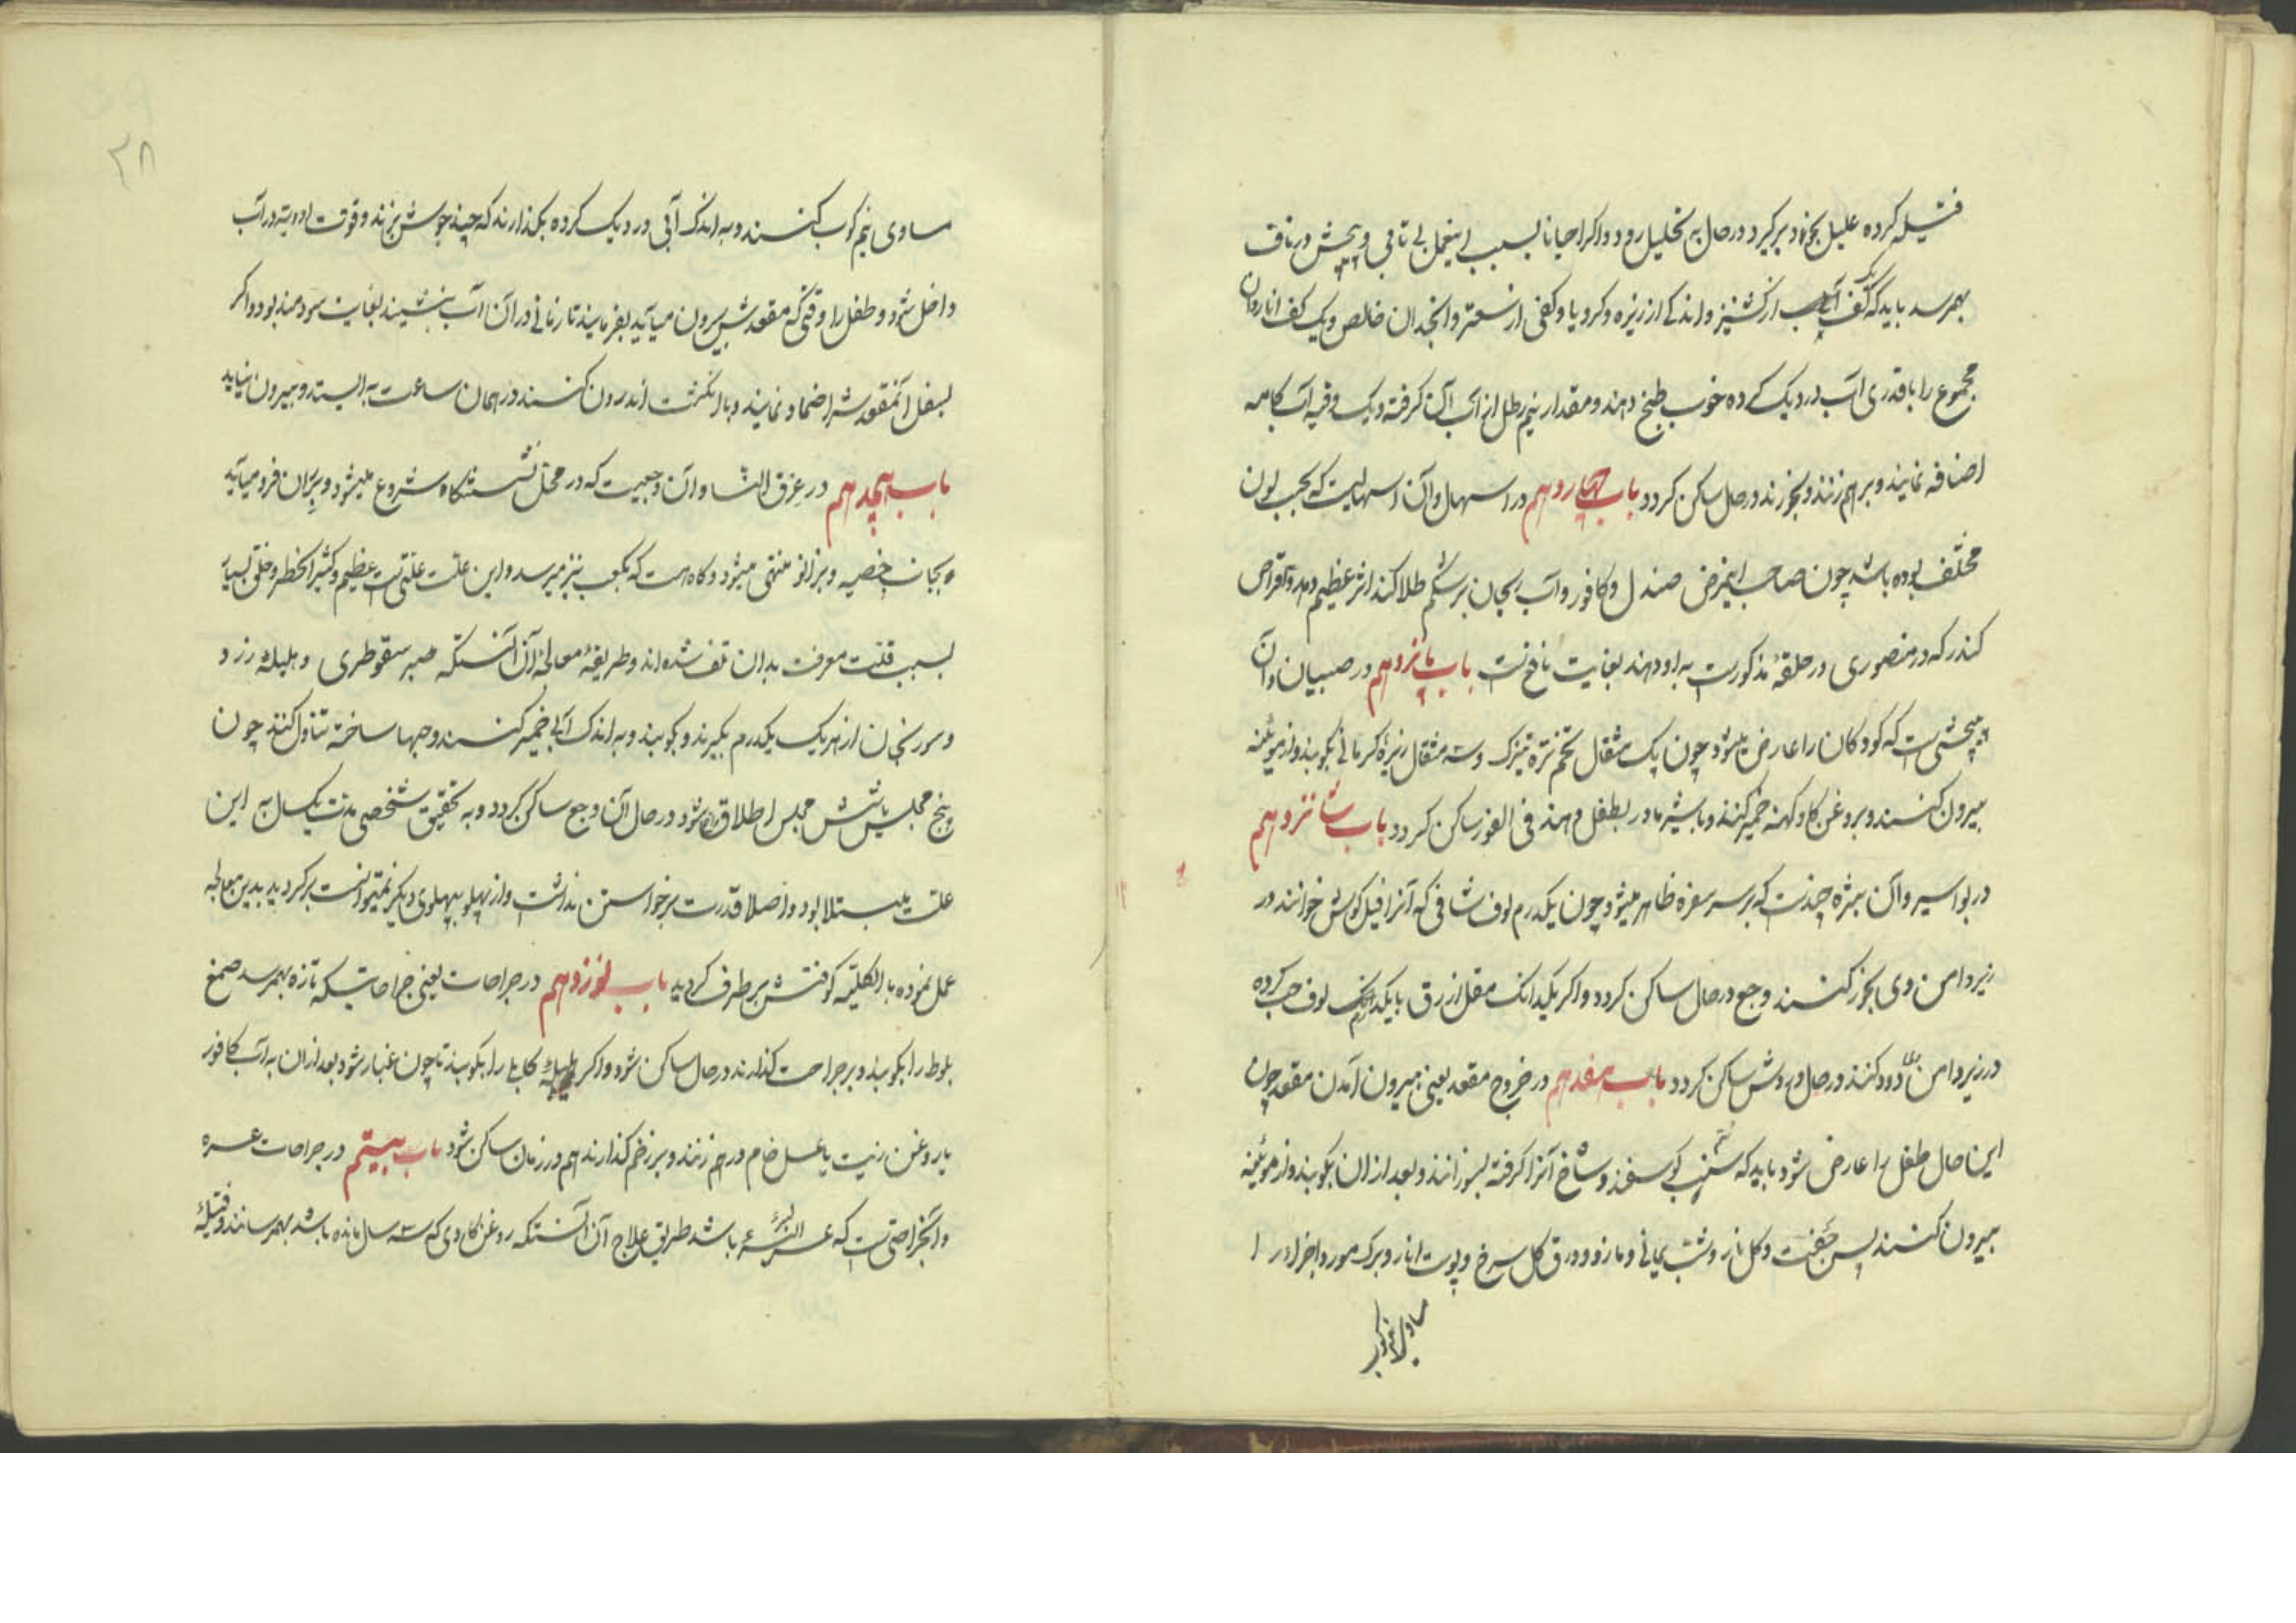 فتیله کرده علیل بخود برکیرد در حال به تحلیل رود و اکر احیانا بسبب اینعمل بی تابی و پیچش در ناف
بهمرسد باید که کف از کشنیز و اندکی از زیره و کرویا و کفی از سعتر و انجدان خالص و یک کف انار دان
مجموع را با قدری آب در دیک کرده خوب طبخ دهند و مقدار نیم رطل از آب آن کرفته و یک وقیه آب کامه
اضافه نمایند و برهم زنند و بخورند در حال ساکن کردد باب چهاردهم در اسهال و آن اسهالیست که بحسب لون
مختلف بوده باشد چون صاحب اینمرض صندل و کافور و آب ریحان بر شکم طلا کند اثر عظیم دهد و اقراص
کندر که در منصوری در حلقه مذکورست به او دهند بغایت نافع است باب پانزدهم در صبیان و آن
پیچشی است که کودکان را عارض میشود چون یک مثقال تخم تره تیزک و سه مثقال زیره کرمانی بکوبند و از موئینه
بیرون کنند و بروغن کاو کهنه خمیر کنند و با شیر مادر بطفل دهند فی الفور ساکن کردد باب شانزدهم
در بواسیر و آن بثره چندست که بر سر سفره ظاهر میشود چون یکدرم لوف شافی که آنرا فیل کوش خوانند در
زیر دامن وی بخور کنند وجع در حال ساکن کردد و اکر یکدانک مقل ازرق با یکدانک لوف حب کرده
در زیر دامن دود کنند در حال دردش ساکن کردد باب هفدهم در خروج مقعد یعنی بیرون آمدن مقعد چون
این حال طفل را عارض شود باید که سم کوسفند و شاخ آنرا کرفته بسوزانند و بعد از ان بکوبند و از موئینه
بیرون کنند پس جفت و کلنار و شب یمانی و مازو و ورق کل سرخ و پوست انار و برک مورد اجزا در
مساوی نیم کوب
٣٨
مساوی نیم کوب کنند و به اندک آبی در دیک کرده بکذارند که چند جوش بزند و قوت ادویه در آب
داخل شود و طفل را وقتی که مقعدش بیرون میآید بفرمایند تا زمانی در آن آب بنشیند بغایت سودمند بود و اکر
بسفل آنمقعدش را ضماد نمایند و با انکشت اندرون کنند در همان ساعت به ایستد و بیرون نیاید
باب هیجدهم در عرق النسا و آن وجعیست که در محل نشستنکاه شروع میشود و بران فرو میآید
و بجانب خصیه و بزانو منتهی میشود و کاه هست که بکعب نیز میرسد و این علت علتی است عظیم و کثیر الخطر و خلق بسیار
بسبب قلت معرفت بدان تلف شده اند و طریقه معالجه آن آنستکه صبر سقوطری و هلیله زرد
و سورنجان از هر یک یکدرم بکیرند و بکوبند و به اندک آبی خمیر کنند و حبها ساخته تناول کنند چون
پنج مجلس یا شش مجلس اطلاق شود در حال آن وجع ساکن کردد و به تحقیق شخصی مدت یکسال به این
علت مبتلا بود و اصلا قدرت برخواستن نداشت و از پهلو بپهلوی دیکر نمیتوانست برکردید بدین معالجه
عمل نموده بالکلیه کوفتش برطرف کردید باب نوزدهم در جراحات یعنی جراحاتیکه تازه بهمرسد صمغ
بلوط را بکوبند و بر جراحت کذارند در حال ساکن شود و اکر هلیله کابلی را بکوبند تا چون غبار شود بعد از ان به آب کافور
یا روغن زیت یا عسل خام درهم زنند و بر زخم کذارند هم در زمان ساکن شود باب بیستم در جراحات عسره
و آنجراحتی است که عسر البرء باشد طریق علاج آن آنستکه روغن کاوی که سه سال مانده باشد بهمرسانند و فتیله